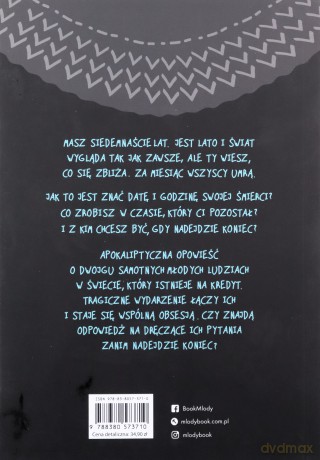 MASZ SIEDEMNAŚCIE LAT. JEST LATO I ŚWIAT
WYGLĄDA TAK JAK ZAWSZE, ALE TY WIESZ,
CO SIĘ ZBLIŻA. ZA MIESIĄC WSZYSCY UMRĄ.
JAK TO JEST ZNAĆ DATĘ I GODZINĘ SWOJEJ ŚMIERCI?
CO ZROBISZ W CZASIE, KTÓRY CI POZOSTAŁ?
I Z KIM CHCESZ BYĆ, GDY NADEJDZIE KONIEC?
APOKALIPTYCZNA OPOWIEŚĆ
O DWOJGU SAMOTNYCH MŁODYCH LUDZIACH
W ŚWIECIE, KTÓRY ISTNIEJE NA KREDYT.
TRAGICZNE WYDARZENIE ŁĄCZY ICH
I STAJE SIĘ WSPÓLNĄ OBSESJĄ. CZY ZNAJDĄ
ODPOWIEDŹ NA DRĘCZĄCE ICH PYTANIA
ZANIM NADEJDZIE KONIEC?
ISBN 978-83-8057-371-0
9 788380 573710
Cena detaliczna: 34,90 zł
BookMlody
mlodybook.com.pl
mlodybook
dvdmax